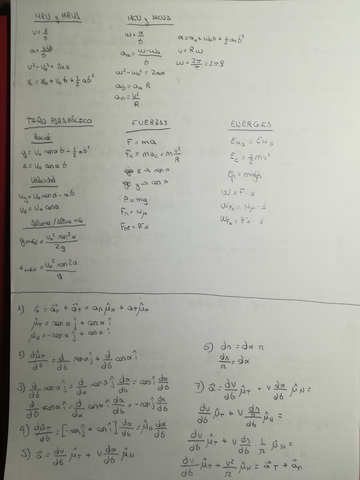 MRU y MRUA
v = x/t
a = v-v₀/t
v² - v₀² = 2as
x = x₀ + v₀t + ½at²
MCU y MCUA
ω = α/t
aα = ω-ω₀/t
ω² - ω₀² = 2αα
at = aα R
an = v²/R
α = α₀ + ω₀t + ½at²
v = Rω
ω = 2π/T = 2πf
TIRO PARABÓLICO
y = v₀ senα t - ½at²
x = v₀ cosα t
Velocidad
vy = v₀ senα - at
vx = v₀ cosα
ymáx = v₀² sen²α/2g
xmáx = v₀² sen2α/g
FUERZAS
F = ma
Fc = mac = m v²/R
eje x → sen α
eje y → cos α
P = mg
Fr = Nμ
Fel = Kx
ENERGÍAS
Ec = ½mv²
Ep = mgh
W = F · s
WFr = Nμ · s
1) a⃗ = a⃗n + a⃗T = an μ̂N + aT μ̂T
μ̂T = senα ĵ + cosα î
μ̂N = -senα î + cosα ĵ
2) dμ̂T/dt = d/dt senα ĵ + d/dt cosα î
3) d/dt senα ĵ = d/dα senα ĵ dα/dt = cosα ĵ dα/dt
d/dt cosα î = d/dα cosα î dα/dt = -senα î dα/dt
4) dμ̂T/dt = [-senα î + cosα ĵ] dα/dt = μ̂N dα/dt
5) a⃗ = dv/dt μ̂T + v dα/dt μ̂N
6) ds = dα r
ds/r = dα
7) a⃗ = dv/dt μ̂T + v dα/dt μ̂N =
dv/dt μ̂T + v ds/r/dt μ̂N =
dv/dt μ̂T + v ds/dt · 1/r μ̂N =
dv/dt μ̂T + v²/r μ̂N = a⃗T + a⃗n